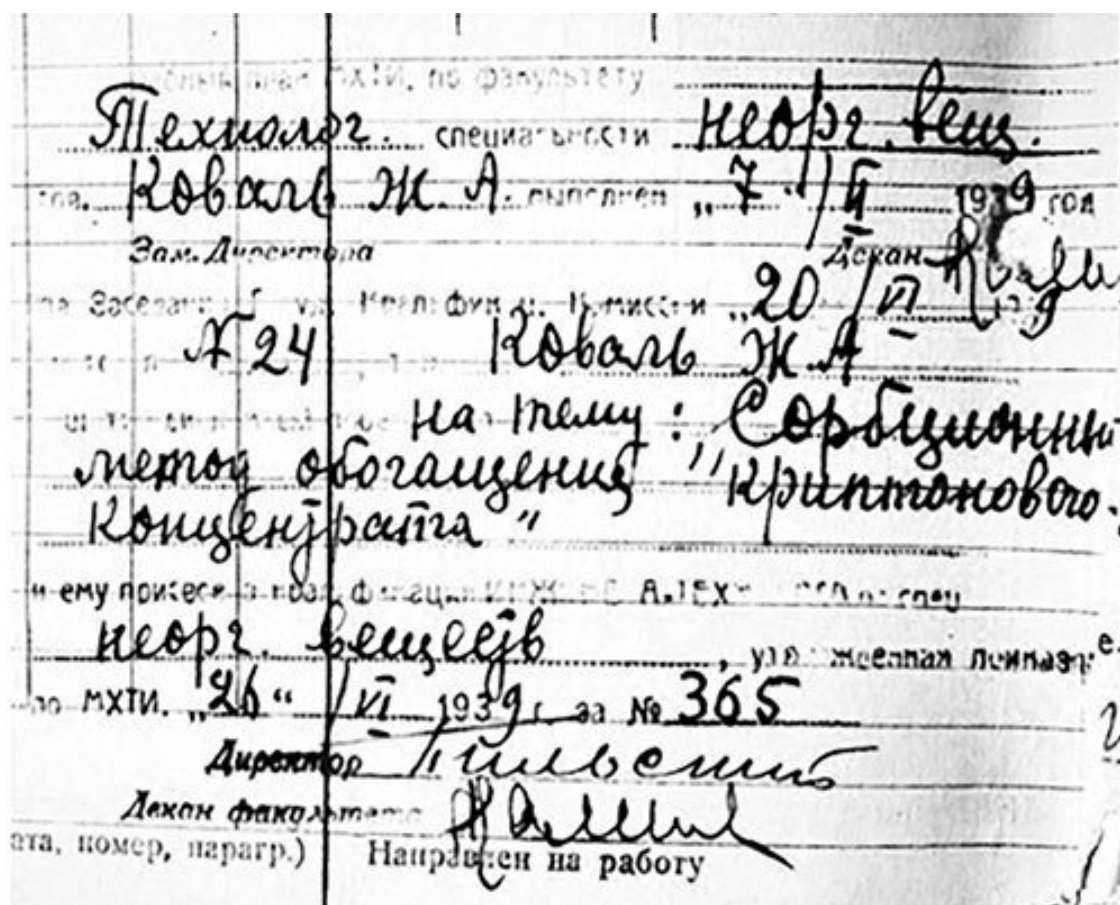 план МХТИ, по факультету
Технолог. специальности неорг. вещ.
тов. Коваль Ж. А. выполнен „7" / II 1939 год
Зам. Директора Декан
Заседании Комиссии „20 / VI 1939
№ 24 Коваль Ж. А
на тему: „Сорбционный
метод обогащения криптонового
концентрата"
и ему присвоена квалификация ИНЖЕНЕРА
неорг. веществ, утвержденная приказом
по МХТИ. „26" / VI 1939 г. за № 365
Директор
Декан факультета
ата, номер, парагр.) Направлен на работу